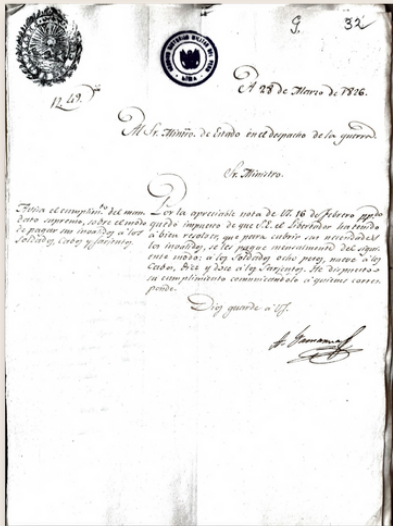 9. 32
A 28 de Marzo de 1826.
Al Sr. Ministro de Estado en el despacho de la guerra
Sr. Ministro.
Avisa el cumplim.to del man
dato supremo, sobre el modo
de pagar sus invalidos á los
Soldados, Cabos y sarjentos.
Por la apreciable nota de V.S. 16 de febrero pp.do
quedo impuesto de que S.E. el Libertador ha tenido
á bien resolver, que para cubrir sus necesidades
los invalidos, se les pague mensualmente del siguien
te modo: á los Soldados ocho pesos, nueve á los
Cabos, diez y doce á los Sarjentos. He dispuesto
su cumplimiento comunicandolo á quienes corres
ponde.
Dios guarde á V.S.